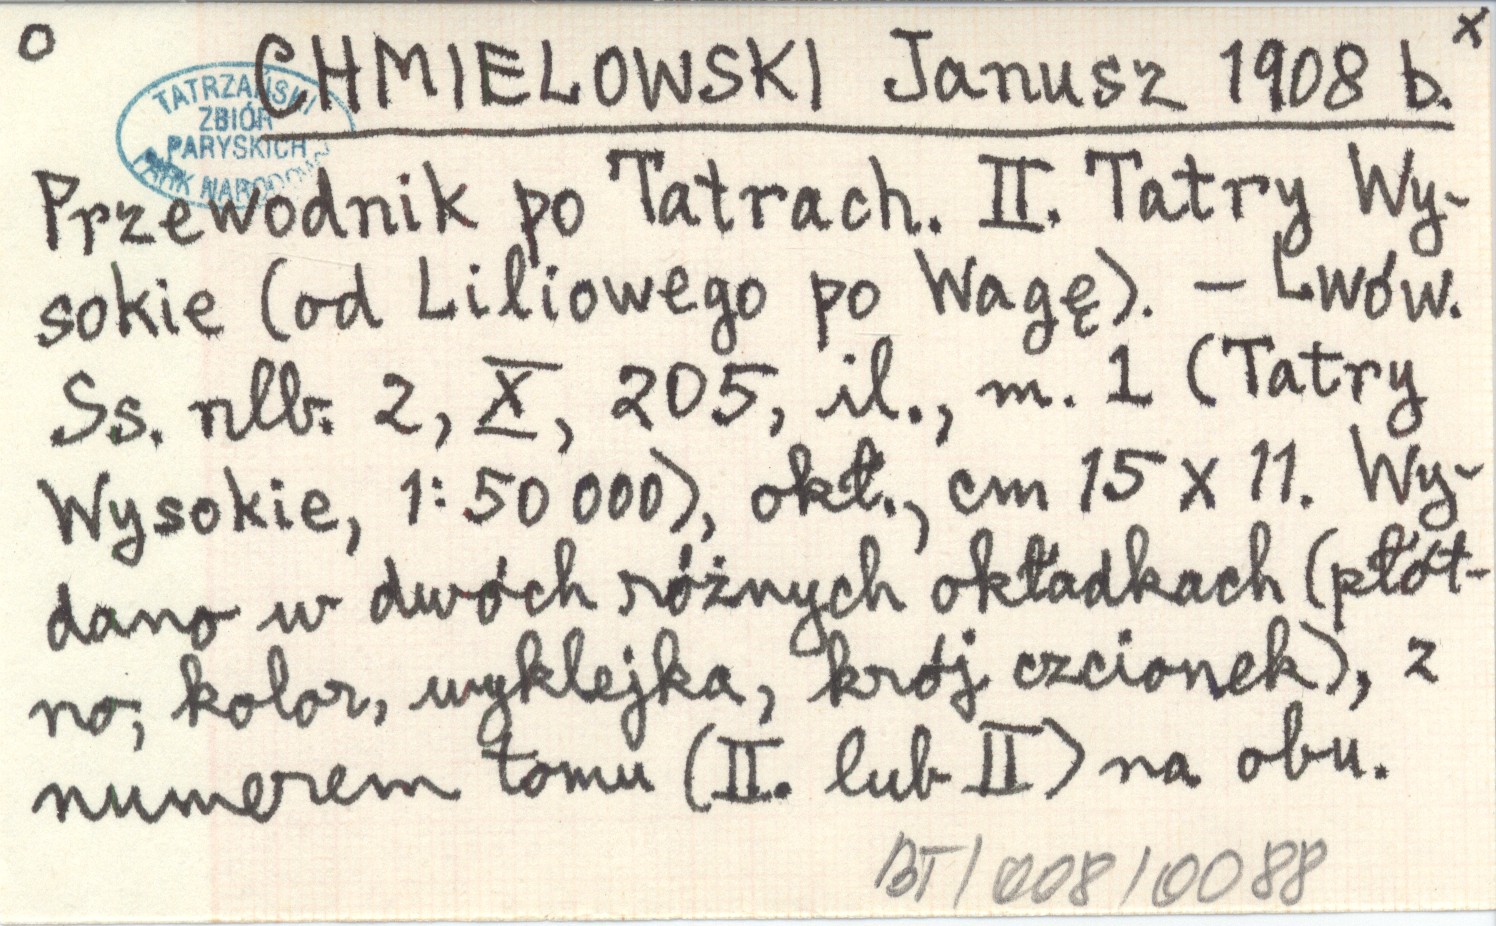 o CHMIELOWSKI Janusz 1908 b. x
TATRZAŃSKI
ZBIÓR
PARYSKICH
PARK NARODOWY
Przewodnik po Tatrach. II. Tatry Wy-
sokie (od Liliowego po Wagę). – Lwów.
Ss. nlb. 2, X, 205, il., m. 1 (Tatry
Wysokie, 1:50 000), okł., cm 15 x 11. Wy-
dano w dwóch różnych okładkach (płót-
no, kolor, wyklejka, krój czcionek), z
numerem tomu (II. lub II) na obu.
BT/008/0088